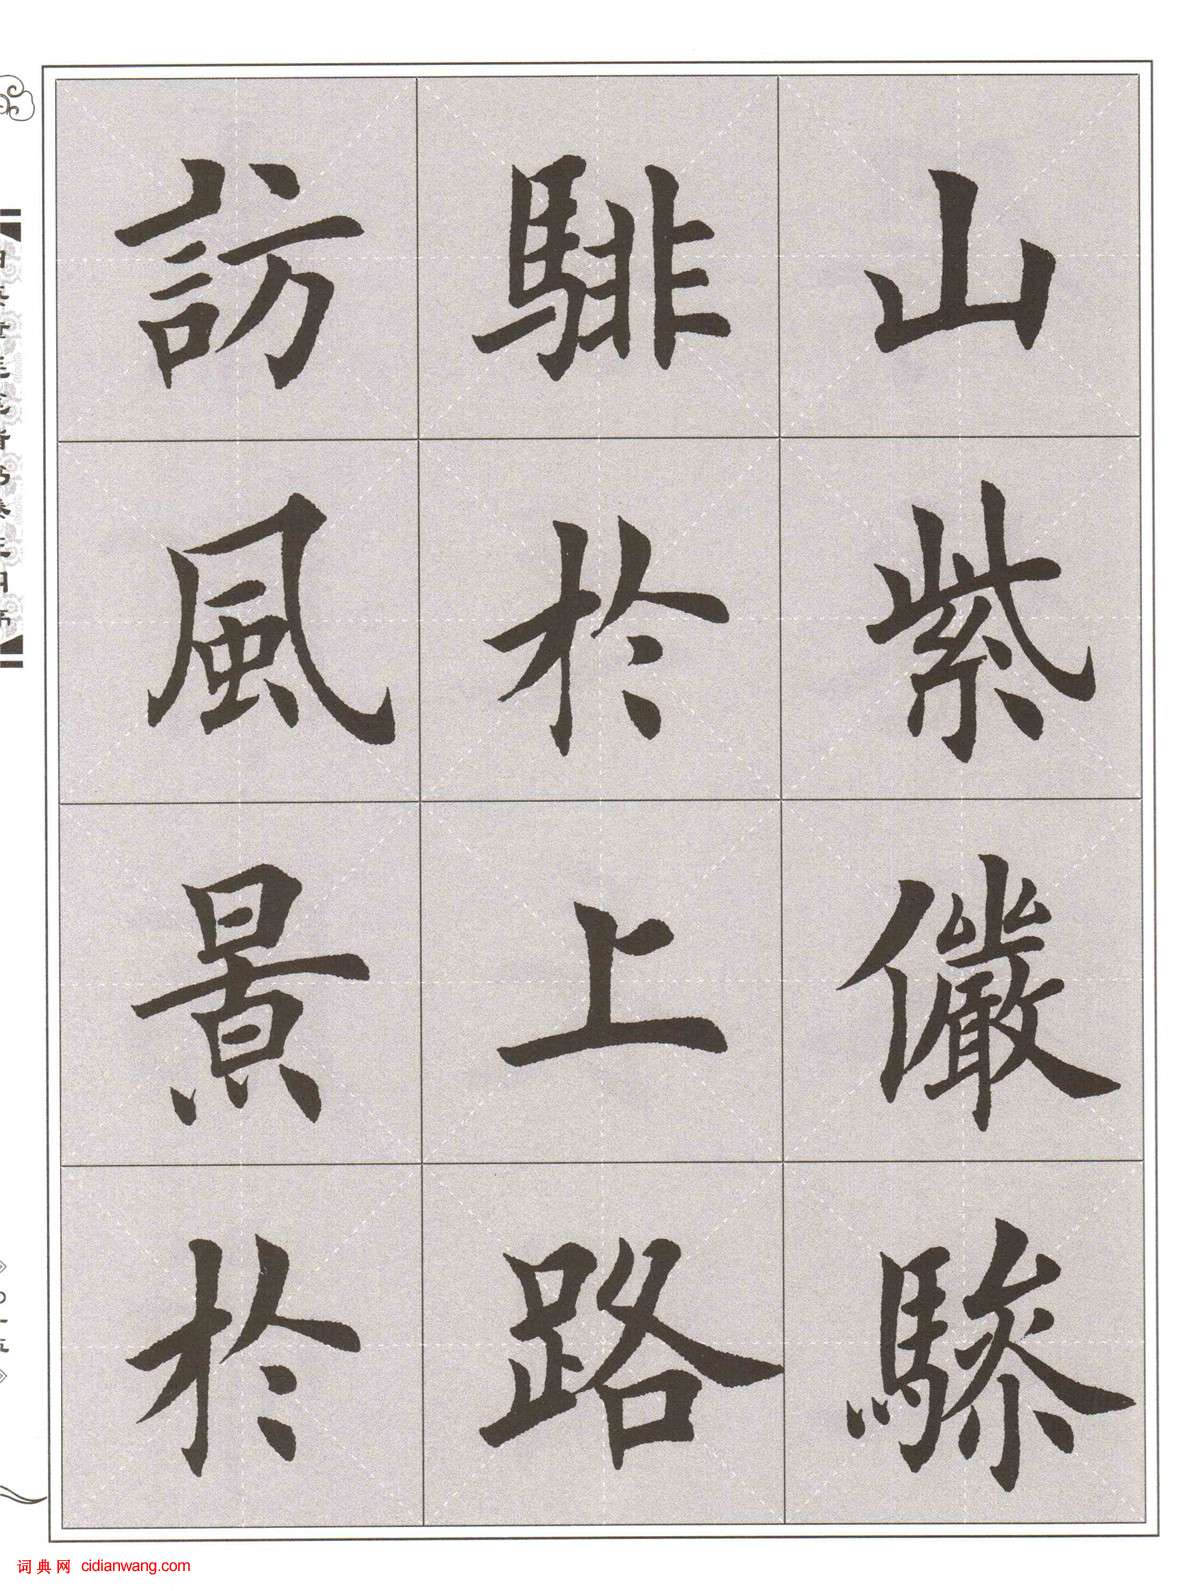 山紫儼驂
騑於上路
訪風景於
词典网 cidianwang.com